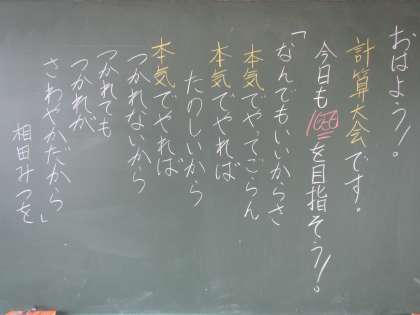 おはよう!。
計算大会です。
今日も100を目指そう!。
「なんでもいいからさ
本気でやってごらん
本気でやれば
たのしいから
本気でやれば
つかれないから
つかれても
つかれが
さわやかだから」
相田みつを